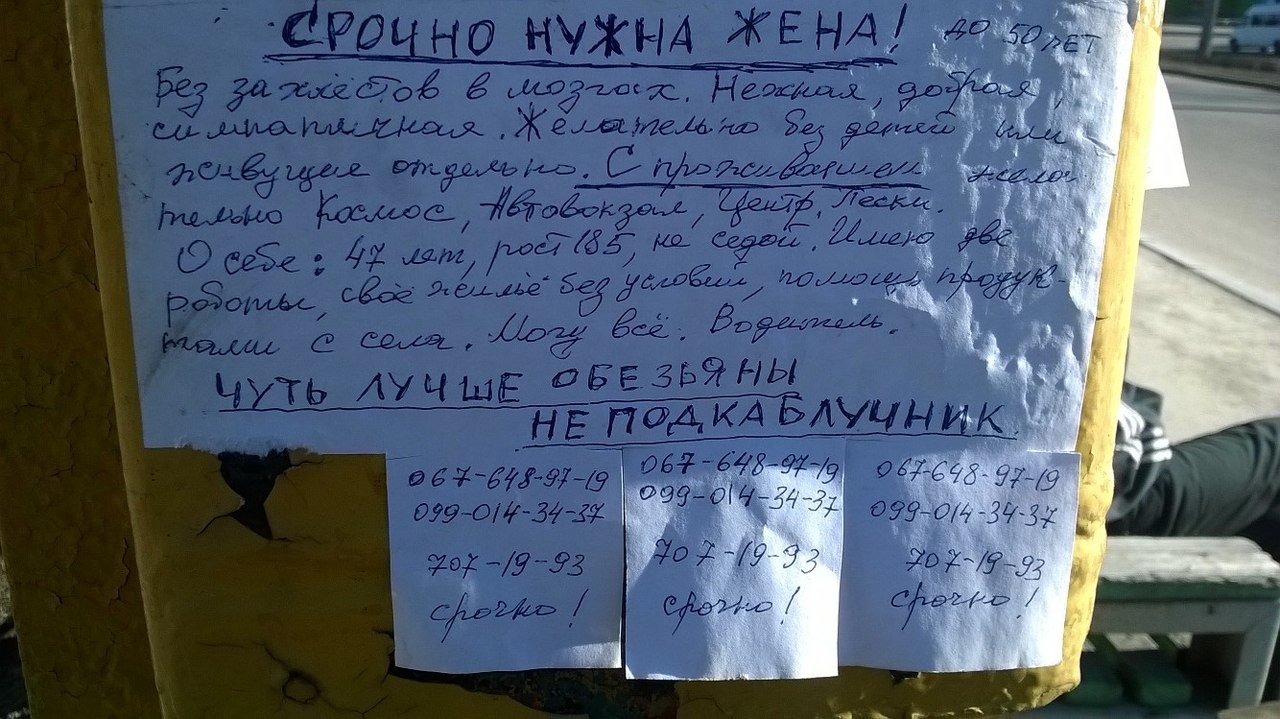 СРОЧНО НУЖНА ЖЕНА! ДО 50 ЛЕТ
Без захлёстов в мозгах. Нежная, добрая,
симпатичная. Желательно без детей или
живущие отдельно. С проживанием жела-
тельно Космос, Автовокзал, Центр, Пески.
О себе: 47 лет, рост 185, не седой. Имею две
работы, своё жильё без условий, помощь продук-
тами с села. Могу всё. Водитель.
ЧУТЬ ЛУЧШЕ ОБЕЗЬЯНЫ
НЕ ПОДКАБЛУЧНИК
067-648-97-19
099-014-34-37
707-19-93
срочно!
067-648-97-19
099-014-34-37
707-19-93
срочно!
067-648-97-19
099-014-34-37
707-19-93
срочно!